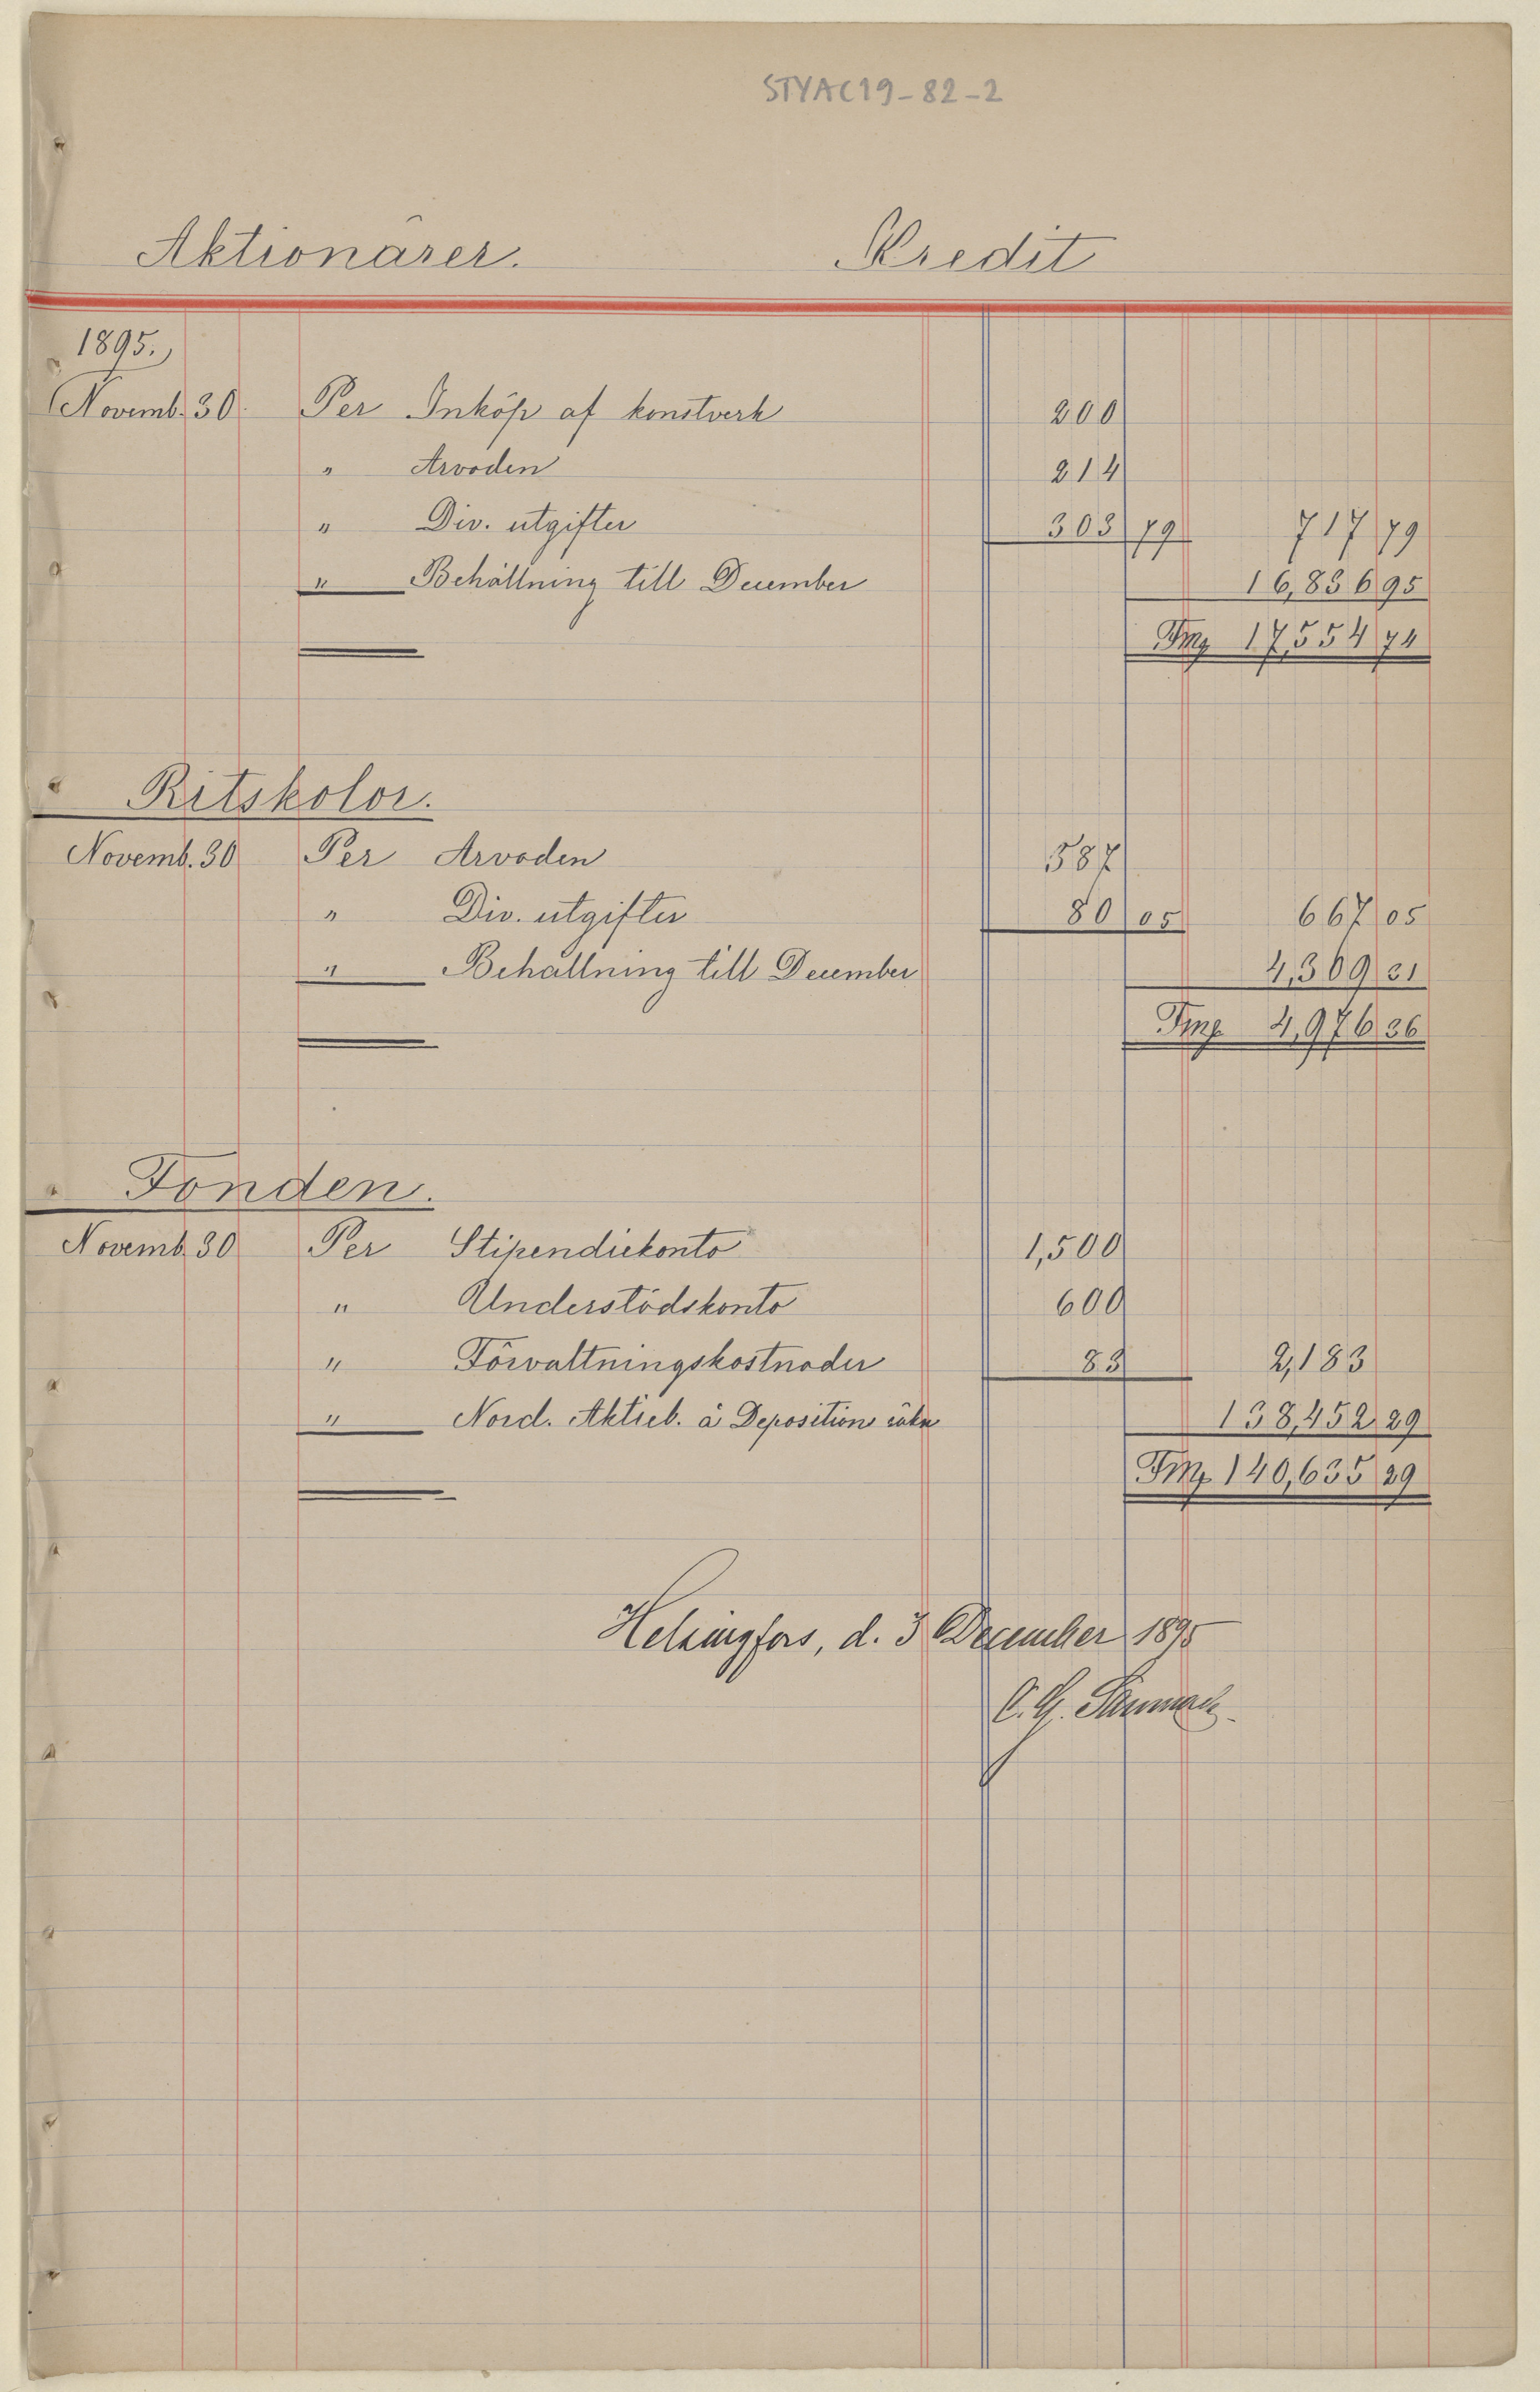 STYAC19-82-2
Aktionärer. Kredit
1895.
Novemb. 30. Per Inköp af konstverk 200
" Arvoden 214
" Div. utgifter 303 79 717 79
" Behållning till December 16,836 95
Fmk 17,554 74
Ritskolor.
Novemb. 30 Per Arvoden 587
" Div. utgifter 80 05 667 05
" Behållning till December 4,309 31
Fmk 4,976 36
Fonden.
Novemb. 30 Per Stipendiekonto 1,500
" Understödskonto 600
" Förvaltningskostnader 83 2,183
" Nord. Aktieb. à Deposition räkn 138,452 29
Fmk 140,635 29
Helsingfors, d. 3 December 1895
C. G.